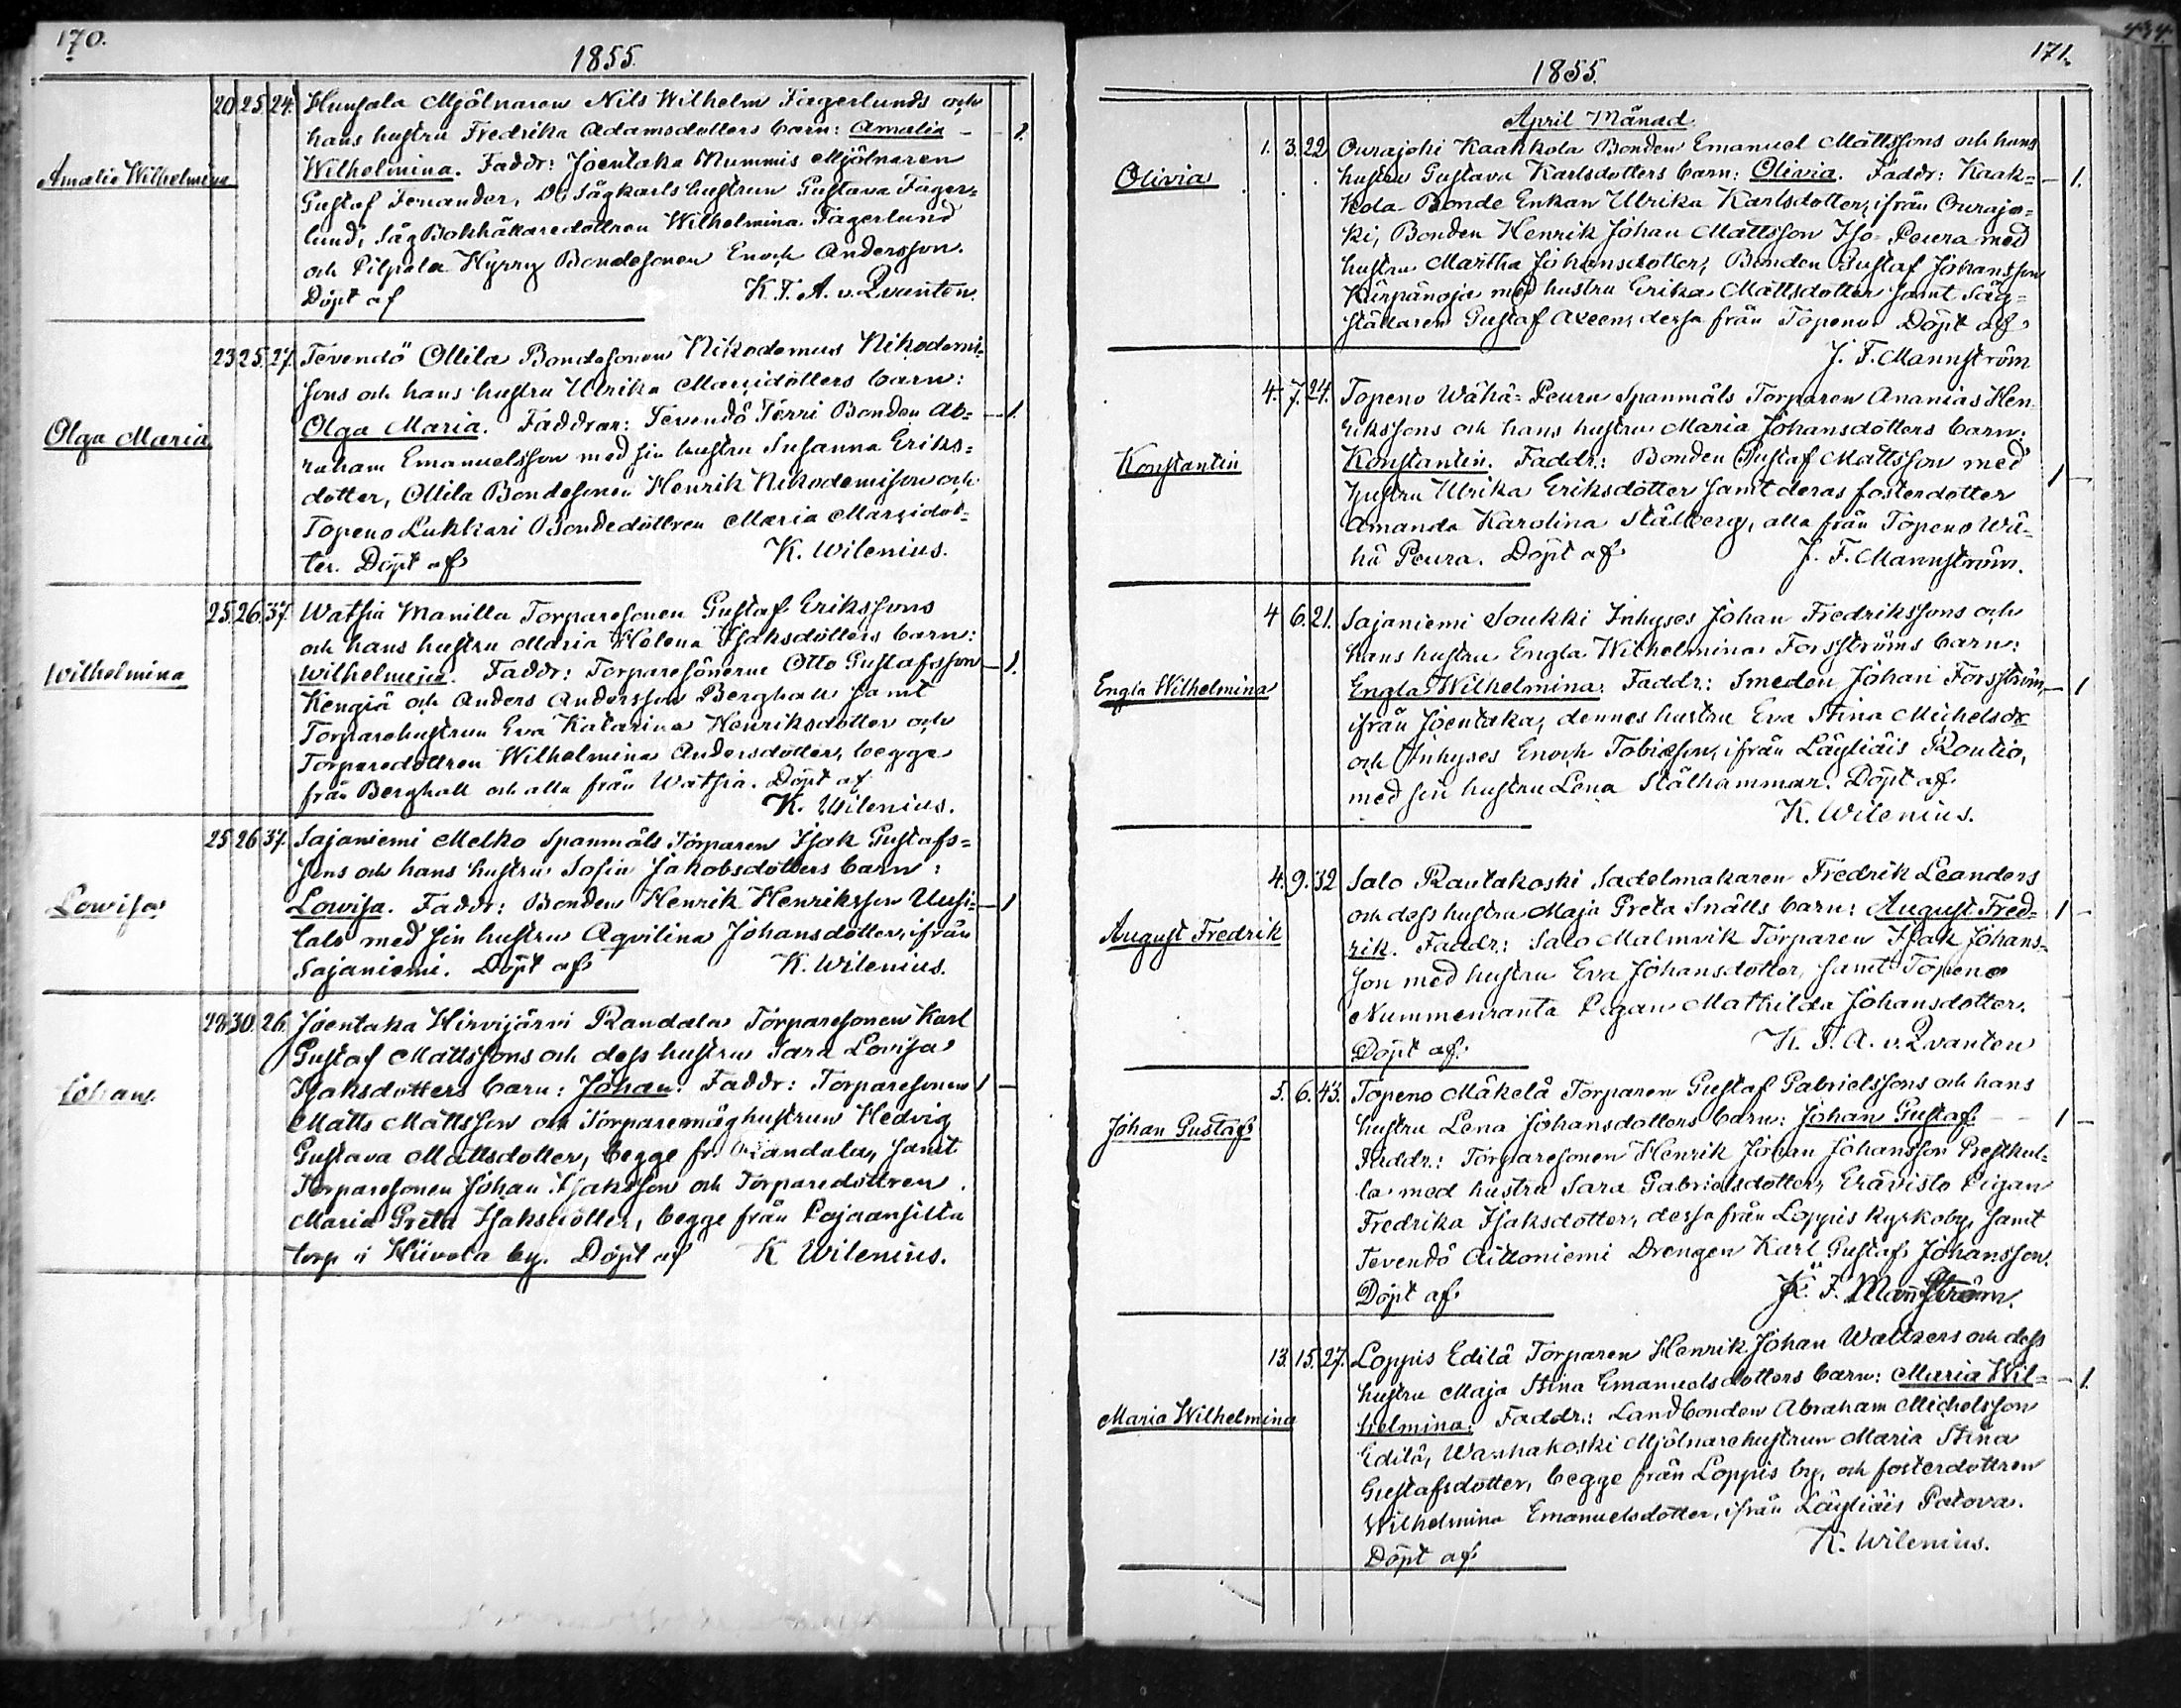 170.
1855.
Amalia Wilhelmina
20 25 24. Hunsala Mjölnaren Nils Wilhelm Fagerlunds och
hans hustru Fredrika Adamsdotters barn: Amalia — — 1.
Wilhelmina. Faddr: Joentaka Nummis Mjölnaren
Gustaf Fenander, Do Sågkarls hustrun Gustava Fager-
lund, Såg Bokhållaredottren Wilhelmina Fagerlund
och Pilpala Hyrry Bondesonen Enoch Andersson.
Döpt af K. F. A. v. Qvanten.
Olga Maria
23 25 27. Tevendö Ollila Bondesonen Nikodemus Nikodemi-
sons och hans hustru Ulrika Mariidotters barn:
Olga Maria. Faddrar: Tevendö Terri Bonden Ab- — 1.
raham Emanuelsson med sin hustru Susanna Eriks-
dotter, Ollila Bondesonen Henrik Nikodemison och
Topeno Lukkari Bondedottren Maria Mariidot-
ter. Döpt af K. Wilenius.
Wilhelmina
25 26 37. Watsia Manilla Torparesonen Gustaf Erikssons
och hans hustru Maria Helena Isaksdotters barn:
Wilhelmina. Faddr: Torparesönerne Otto Gustafsson — 1.
Kengiä och Anders Andersson Berghall samt
Torparehustrun Eva Katarina Henriksdotter och
Torparedottren Wilhelmina Andersdotter, begge
från Berghall och alla från Watsia. Döpt af
K. Wilenius.
Lowisa
25 26 37. Sajaniemi Melko Spanmåls Torparen Isak Gustafs-
sons och hans hustru Sofia Jakobsdotters barn:
Lowisa. Faddr: Bonden Henrik Henriksson Uusi- — 1
talo med sin hustru Aqvilina Johansdotter, ifrån
Sajaniemi. Döpt af K. Wilenius.
Johan.
28 30. 26. Joentaka Hirvijärvi Randala Torparesonen Karl
Gustaf Mattssons och dess hustru Sara Lovisa
Isaksdotters barn: Johan. Faddr: Torparesonen 1 —
Matts Mattsson och Torparemåghustrun Hedvig
Gustava Mattsdotter, begge fr. Randala, samt
Torparesonen Johan Isaksson och Torparedottren
Maria Greta Isaksdotter, begge från Pajaansilta
torp i Hiivola by. Döpt af K Wilenius.
171.
1855.
April Månad.
Olivia
1. 3. 22 Ourajoki Kaakkola Bonden Emanuel Mattssons och hans
hustru Gustava Karlsdotters barn: Olivia. Faddr: Kaak- — 1.
kola Bonde Enkan Ulrika Karlsdotter, ifrån Ourajo-
ki, Bonden Henrik Johan Mattsson Iso-Peura med
hustru Martha Johansdotter, Bonden Gustaf Johansson
Kärpänoja med hustru Erika Mattsdotter samt Såg-
ställaren Gustaf Axeen, dessa från Topeno. Döpt af
J. F. Mannström
Konstantin
4. 7. 24. Topeno Wähä-Peura Spanmåls Torparen Ananias Hen-
rikssons och hans hustru Maria Johansdotters barn:
Konstantin. Faddr.: Bonden Gustaf Mattsson med 1 —
hustru Ulrika Eriksdotter samt deras fosterdotter
Amanda Karolina Stålberg, alla från Topeno Wä-
hä Peura. Döpt af J. F. Mannström.
Engla Wilhelmina
4 6. 21. Sajaniemi Soukki Inhyses Johan Fredrikssons och
hans hustru Engla Wilhelmina Forsströms barn:
Engla Wilhelmina. Faddr.: Smeden Johan Forsström, — 1
ifrån Joentaka, dennes hustru Eva Stina Michelsdr
och Inhyses Enoch Tobiasson, ifrån Läyliäis Routio,
med sin hustru Lena Stålhammar. Döpt af
K. Wilenius.
August Fredrik
4. 9. 32 Salo Rautakoski Sadelmakaren Fredrik Leanders
och dess hustru Maja Greta Snälls barn: August Fred- 1 —
rik. Faddr.: Salo Malmvik Torparen Isak Johans-
son med hustru Eva Johansdotter, samt Topeno
Nummenranta Pigan Mathilda Johansdotter.
Döpt af K. F. A. v. Qvanten
Johan Gustaf
5. 6. 43. Topeno Mäkelä Torparen Gustaf Gabrielssons och hans
hustru Lena Johansdotters barn: Johan Gustaf. — — 1 —
Faddr.: Torparesonen Henrik Johan Johansson Prestkul-
la med hustru Sara Gabrielsdotter, Erävisto Pigan
Fredrika Isaksdotter, dessa från Loppis kyrkoby, samt
Tevendö Aittoniemi Drengen Karl Gustaf Johansson.
Döpt af J. F. Mannström.
Maria Wilhelmina
13. 15. 27. Loppis Edilä Torparen Henrik Johan Waltzers och dess
hustru Maja Stina Emanuelsdotters barn: Maria Wil- — 1.
helmina. Faddr.: Landbonden Abraham Michelsson
Edilä, Wanhakoski Mjölnarehustrun Maria Stina
Gustafsdotter, begge från Loppis by, och fosterdottren
Wilhelmina Emanuelsdotter, ifrån Läyliäis Patova.
Döpt af K. Wilenius.